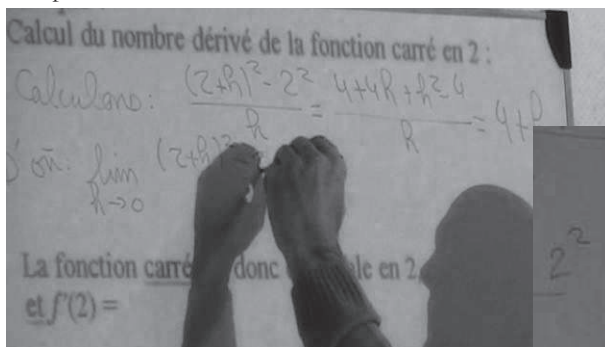 Calcul du nombre dérivé de la fonction carré en 2 :
Calculons : (2+h)²-2² / h = 4+4h+h²-4 / h = 4+h
D'où : lim h→0 (2+h)²
2²
La fonction carré donc en 2
et f'(2) =